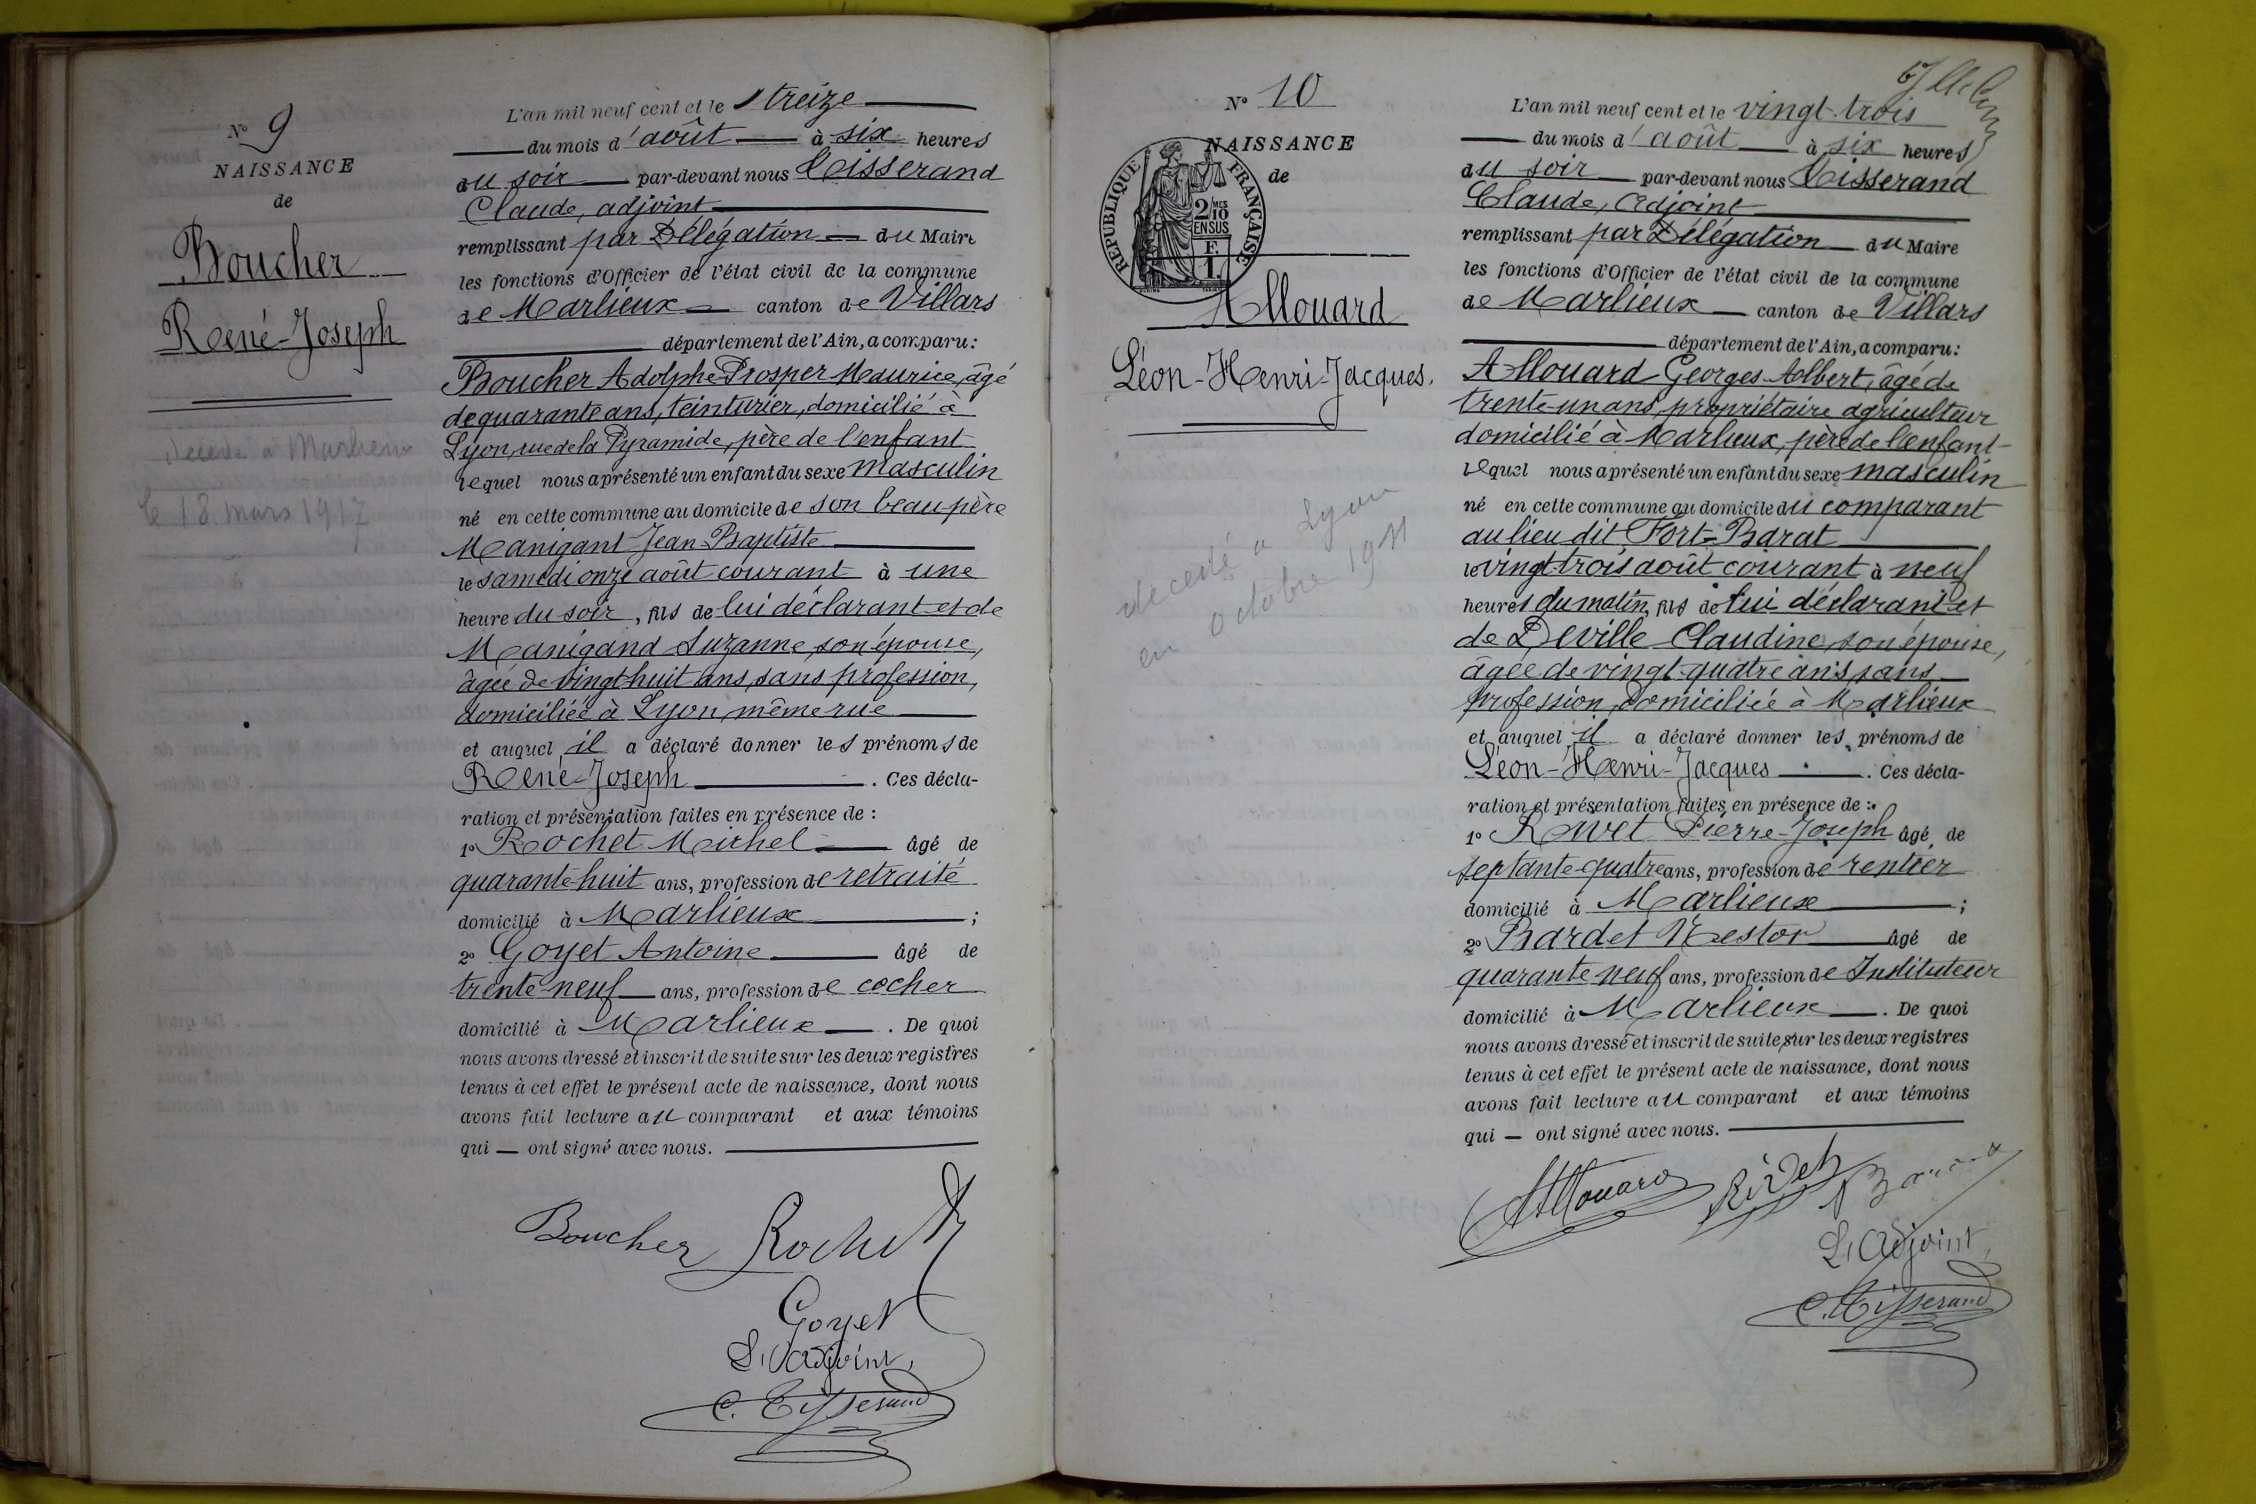 N° 9
NAISSANCE
de
Boucher
René-Joseph
décédé à Marlieux
le 18 mars 1917
L'an mil neuf cent et le treize
du mois d'août à six heures
au soir par-devant nous Tisserand
Claude, adjoint
remplissant par Délégation du Maire
les fonctions d'Officier de l'état civil de la commune
de Marlieux canton de Villars
département de l'Ain, a comparu:
Boucher Adolphe-Prosper Maurice, âgé
de quarante ans, teinturier, domicilié à
Lyon, rue de la Pyramide, père de l'enfant
lequel nous a présenté un enfant du sexe masculin
né en cette commune au domicile de son beau père
Manigant Jean-Baptiste
le samedi onze août courant à une
heure du soir, fils de lui déclarant et de
Manigand Suzanne, son épouse,
âgée de vingt huit ans, sans profession,
domiciliée à Lyon, même rue
et auquel il a déclaré donner les prénoms de
René-Joseph. Ces décla-
ration et présentation faites en présence de :
1° Rochet Michel âgé de
quarante-huit ans, profession de retraité
domicilié à Marlieux ;
2° Goyet Antoine âgé de
trente-neuf ans, profession de cocher
domicilié à Marlieux. De quoi
nous avons dressé et inscrit de suite sur les deux registres
tenus à cet effet le présent acte de naissance, dont nous
avons fait lecture au comparant et aux témoins
qui — ont signé avec nous.
Boucher Rochet
Goyet
L'Adjoint,
C. Tisserand
N° 10
NAISSANCE
de
RÉPUBLIQUE FRANÇAISE
2/10 EN SUS
Allouard
Léon-Henri-Jacques.
décédé à Lyon
en octobre 1911
L'an mil neuf cent et le vingt-trois
du mois d'août à six heures
au soir par-devant nous Tisserand
Claude, adjoint
remplissant par Délégation du Maire
les fonctions d'Officier de l'état civil de la commune
de Marlieux canton de Villars
département de l'Ain, a comparu:
Allouard Georges-Albert, âgé de
trente-un ans, propriétaire agriculteur
domicilié à Marlieux, père de l'enfant
lequel nous a présenté un enfant du sexe masculin
né en cette commune au domicile du comparant
au lieu dit Fort-Barat
le vingt-trois août courant à neuf
heures du matin, fils de lui déclarant et
de Deville Claudine, son épouse,
âgée de vingt-quatre ans sans
profession, domiciliée à Marlieux
et auquel il a déclaré donner les prénoms de
Léon-Henri-Jacques. Ces décla-
ration et présentation faites en présence de :
1° Rivet Pierre-Joseph âgé de
septante-quatre ans, profession de rentier
domicilié à Marlieux ;
2° Bardet Nestor âgé de
quarante neuf ans, profession de Instituteur
domicilié à Marlieux. De quoi
nous avons dressé et inscrit de suite sur les deux registres
tenus à cet effet le présent acte de naissance, dont nous
avons fait lecture au comparant et aux témoins
qui — ont signé avec nous.
Allouard Rivet
L'Adjoint,
C. Tisserand